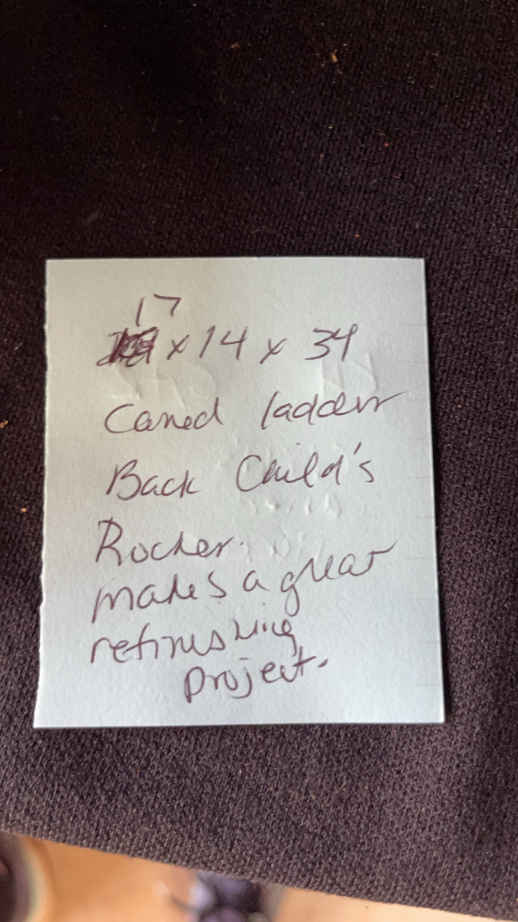 17
x 14 x 34
Caned ladder
Back Child's
Rocker.
makes a great
refinishing
project.